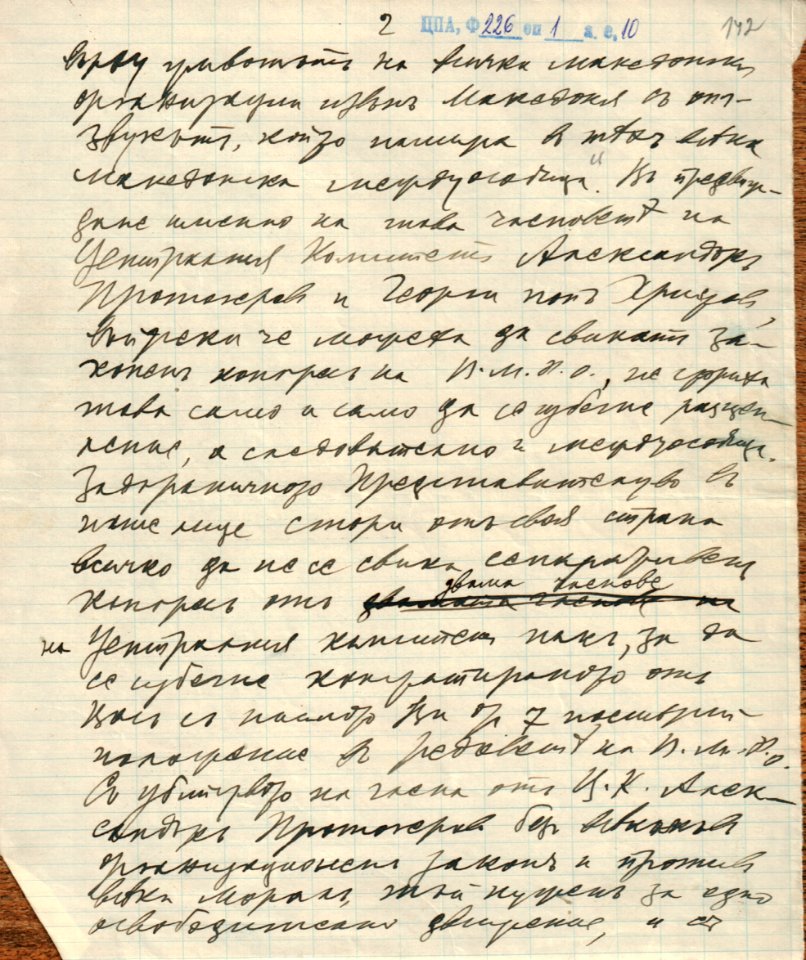 2 ЦПА, Ф 226 оп 1 а. е. 10 142
върху животътъ на всички македонски
организации извънъ Македония съ от-
звукътъ, който намира въ тѣхъ всѣка
македонска междуособица". Въ предвиж-
дане именно на това членоветѣ на
Централния Комитетъ Александъръ
Протогеровъ и Георги попъ Христовъ,
въпреки че можеха да свикатъ за-
коненъ конгресъ на В.М.Р.О., не сториха
това само и само да се избегне разцеп-
ление, а следователно и междуособица.
Задграничното Представителство въ
наше лице стори отъ своя страна
всичко да не се свика сепаративенъ
конгресъ отъ двама членове
на Централния комитетъ пакъ, за да
се избегне констатираното отъ
Васъ съ писмото Ви бр 7
положение въ редоветѣ на В.М.Р.О.
Съ убийството на члена отъ Ц.К. Алек-
сандъръ Протогеровъ безъ всѣкакъвъ
организационенъ законъ и противъ
всѣки моралъ, тъй нуженъ за едно
освободително движение, и съ